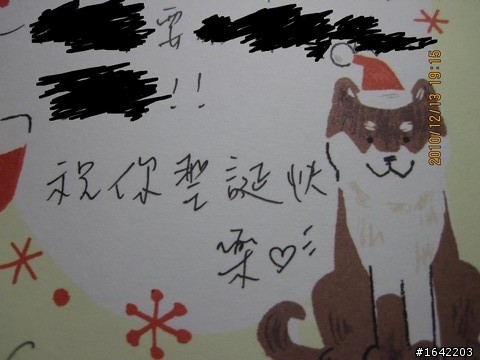 要
!!
祝你聖誕快
樂♡
2010/12/13 19:15
#1642203